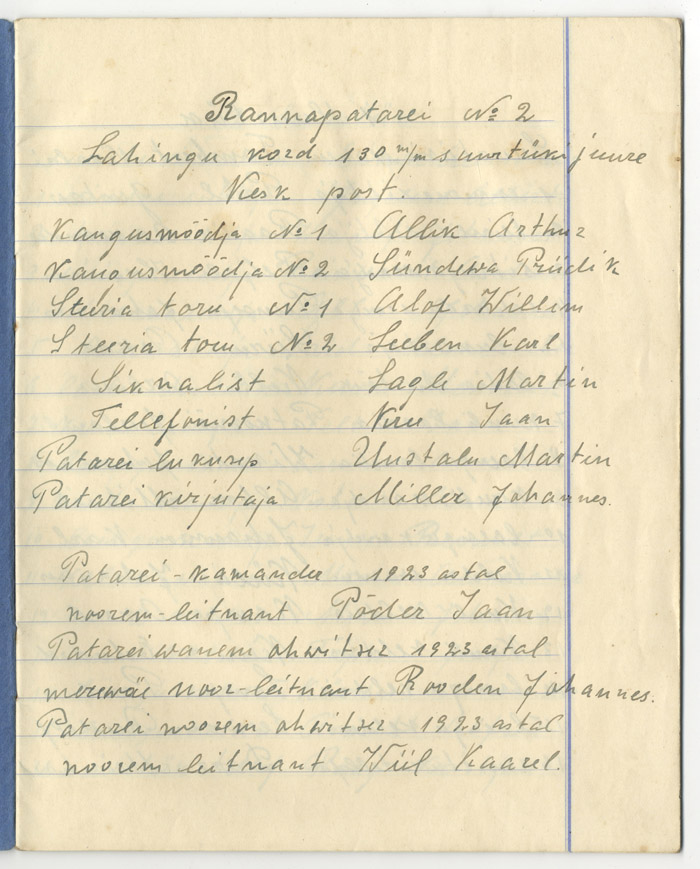 Rannapatarei № 2
Lahingu kord 130 m/m suurtüki juure
Kesk post.
Kaugusmõõdja № 1 Allik Arthur
Kaugusmõõdja № 2 Sündewa Priidik
Steeria toru № 1 Alof Willem
Steeria toru № 2 Leeben Karl
Siknalist Sagle Martin
Tellefonist Kuu Jaan
Patarei lukusep Uustalu Martin
Patarei kirjutaja Miller Johannes.
Patarei-kamander 1923 astal
noorem-leitnant Põder Jaan
Patarei wanem ohwitser 1923 astal
merewäe noor-leitnant Rooden Johannes.
Patarei noorem ohwitser 1923 astal
noorem leitnant Wiil Kaarel.